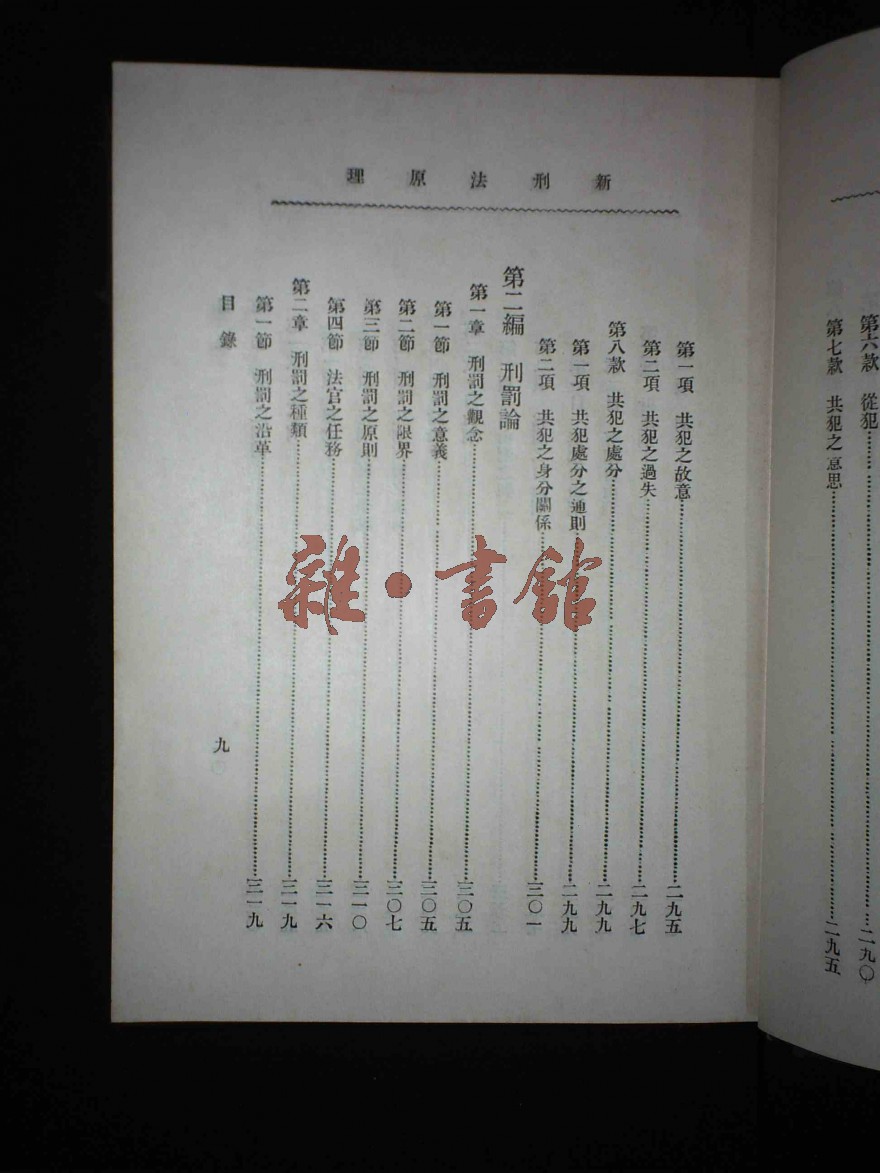 第六款　從犯……二九〇
第七款　共犯之意思……二九五
新刑法原理
第一項　共犯之故意……二九五
第二項　共犯之過失……二九七
第八款　共犯之處分……二九九
第一項　共犯處分之通則……二九九
第二項　共犯之身分關係……三〇一
第二編　刑罰論
第一章　刑罰之觀念……三〇五
第一節　刑罰之意義……三〇五
第二節　刑罰之限界……三〇七
第三節　刑罰之原則……三一〇
第四節　法官之任務……三一六
第二章　刑罰之種類……三一九
第一節　刑罰之沿革……三一九
目錄
九
雜·書館